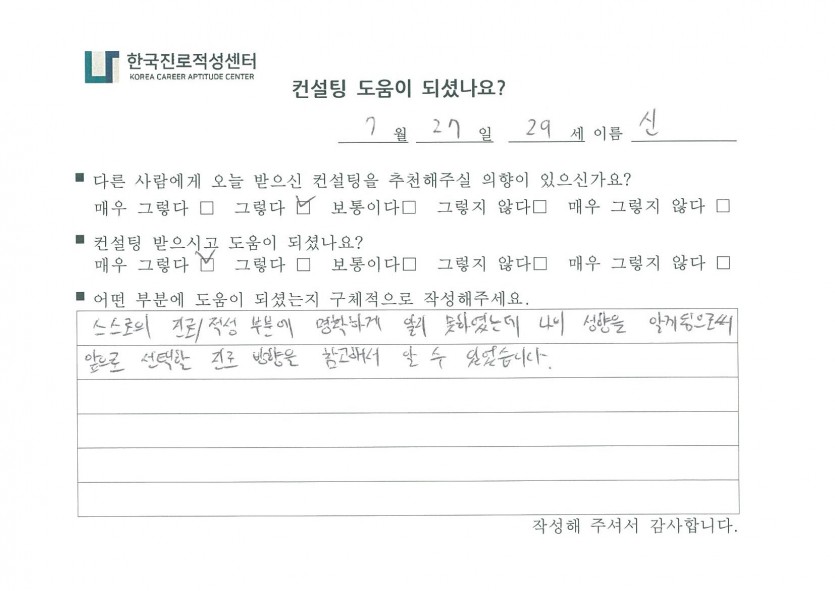 한국진로적성센터
KOREA CAREER APTITUDE CENTER
컨설팅 도움이 되셨나요?
7 월 27 일 29 세 이름 신
■ 다른 사람에게 오늘 받으신 컨설팅을 추천해주실 의향이 있으신가요?
매우 그렇다 □ 그렇다 ☑ 보통이다□ 그렇지 않다□ 매우 그렇지 않다 □
■ 컨설팅 받으시고 도움이 되셨나요?
매우 그렇다 ☑ 그렇다 □ 보통이다□ 그렇지 않다□ 매우 그렇지 않다 □
■ 어떤 부분에 도움이 되셨는지 구체적으로 작성해주세요.
스스로의 진로/적성 부분에 명확하게 알지 못하였는데 나의 성향을 알게됨으로써
앞으로 선택할 진로 방향을 참고해서 알 수 있었습니다.
작성해 주셔서 감사합니다.